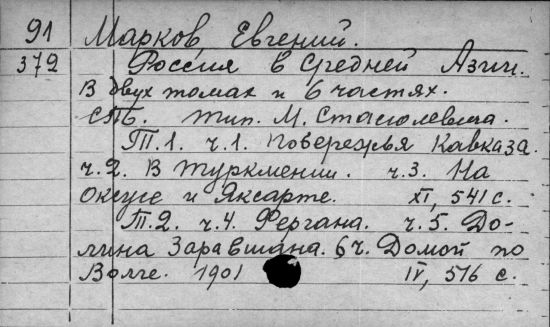 91 Марков, Евгений.
372 Россия в Средней Азии.
В двух томах и 6 частях.
СПБ. тип. М. Стасюлевича.
Т.1. ч.1. Побережья Кавказа.
ч.2. В Туркмении. ч.3. На
Оксусе и Яксарте. XI, 541 с.
Т.2. ч.4. Фергана. ч.5. До-
лина Заравшана. 6 ч. Домой по
Волге. 1901 IV, 516 с.